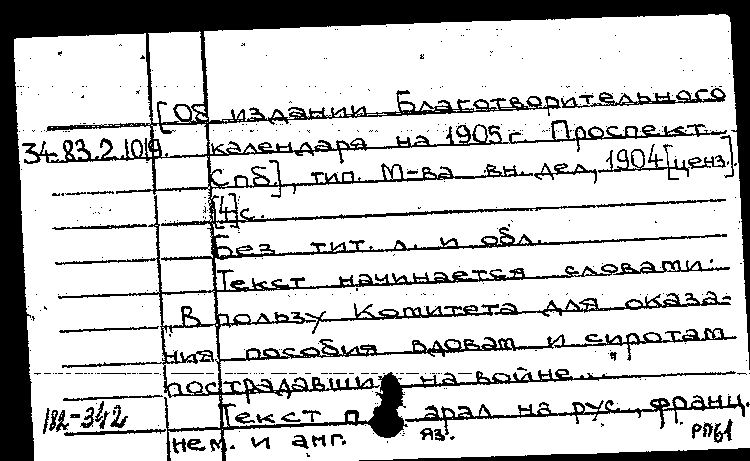 [Об издании Благотворительного
34.83.2.1019. календаря на 1905 г. Проспект
Спб.], тип. М-ва вн. дел, 1904 [ценз.].
[4] с.
Без тит. л. и обл.
Текст начинается словами:
„В пользу Комитета для оказа-
ния пособия вдовам и сиротам
пострадавши на войне..."
182-342 Текст п арал на рус., франц.
нем. и анг. яз. РП61